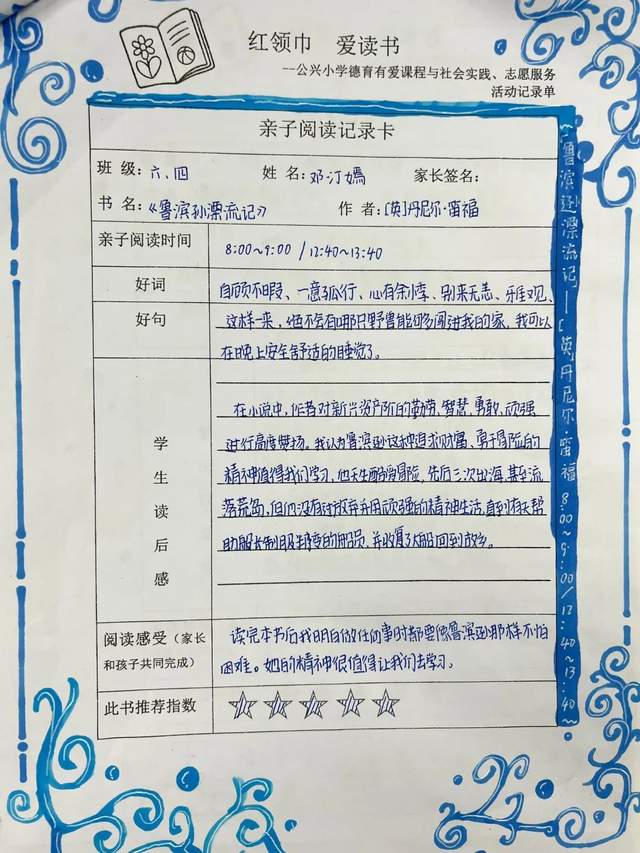 红领巾 爱读书
--公兴小学德育有爱课程与社会实践、志愿服务
活动记录单
亲子阅读记录卡
班 级: 六.四 姓 名: 邓汀嫣 家长签名:
书 名:《鲁滨孙漂流记》 作 者:[英]丹尼尔·笛福
亲子阅读时间 8:00~9:00 / 12:40~13:40
好词 自顾不暇、一意孤行、心有余悸、别来无恙、雅观、
好句 这样一来,便不会有哪只野兽能够闯进我的家,我可以
在晚上安全舒适的睡觉了。
学生读后感
在小说中,作者对新兴资产阶的勤劳、智慧、勇敢、顽强
进行高度赞扬。我认为鲁滨逊这种追求财富、勇于冒险的
精神值得我们学习,他天生酷爱冒险,先后三次出海,甚至流
落荒岛,但他没有放弃并用顽强的精神生活,直到有天帮
助船长制服叛变的船员,并收复大船回到故乡。
阅读感受(家长
和孩子共同完成)
读完本书后我明白做任何事时都要像鲁滨逊那样不怕
困难。她的精神很值得让我们去学习。
此书推荐指数
鲁滨逊漂流记——[英]丹尼尔·笛福 8:00~9:00/12:40~13:40~